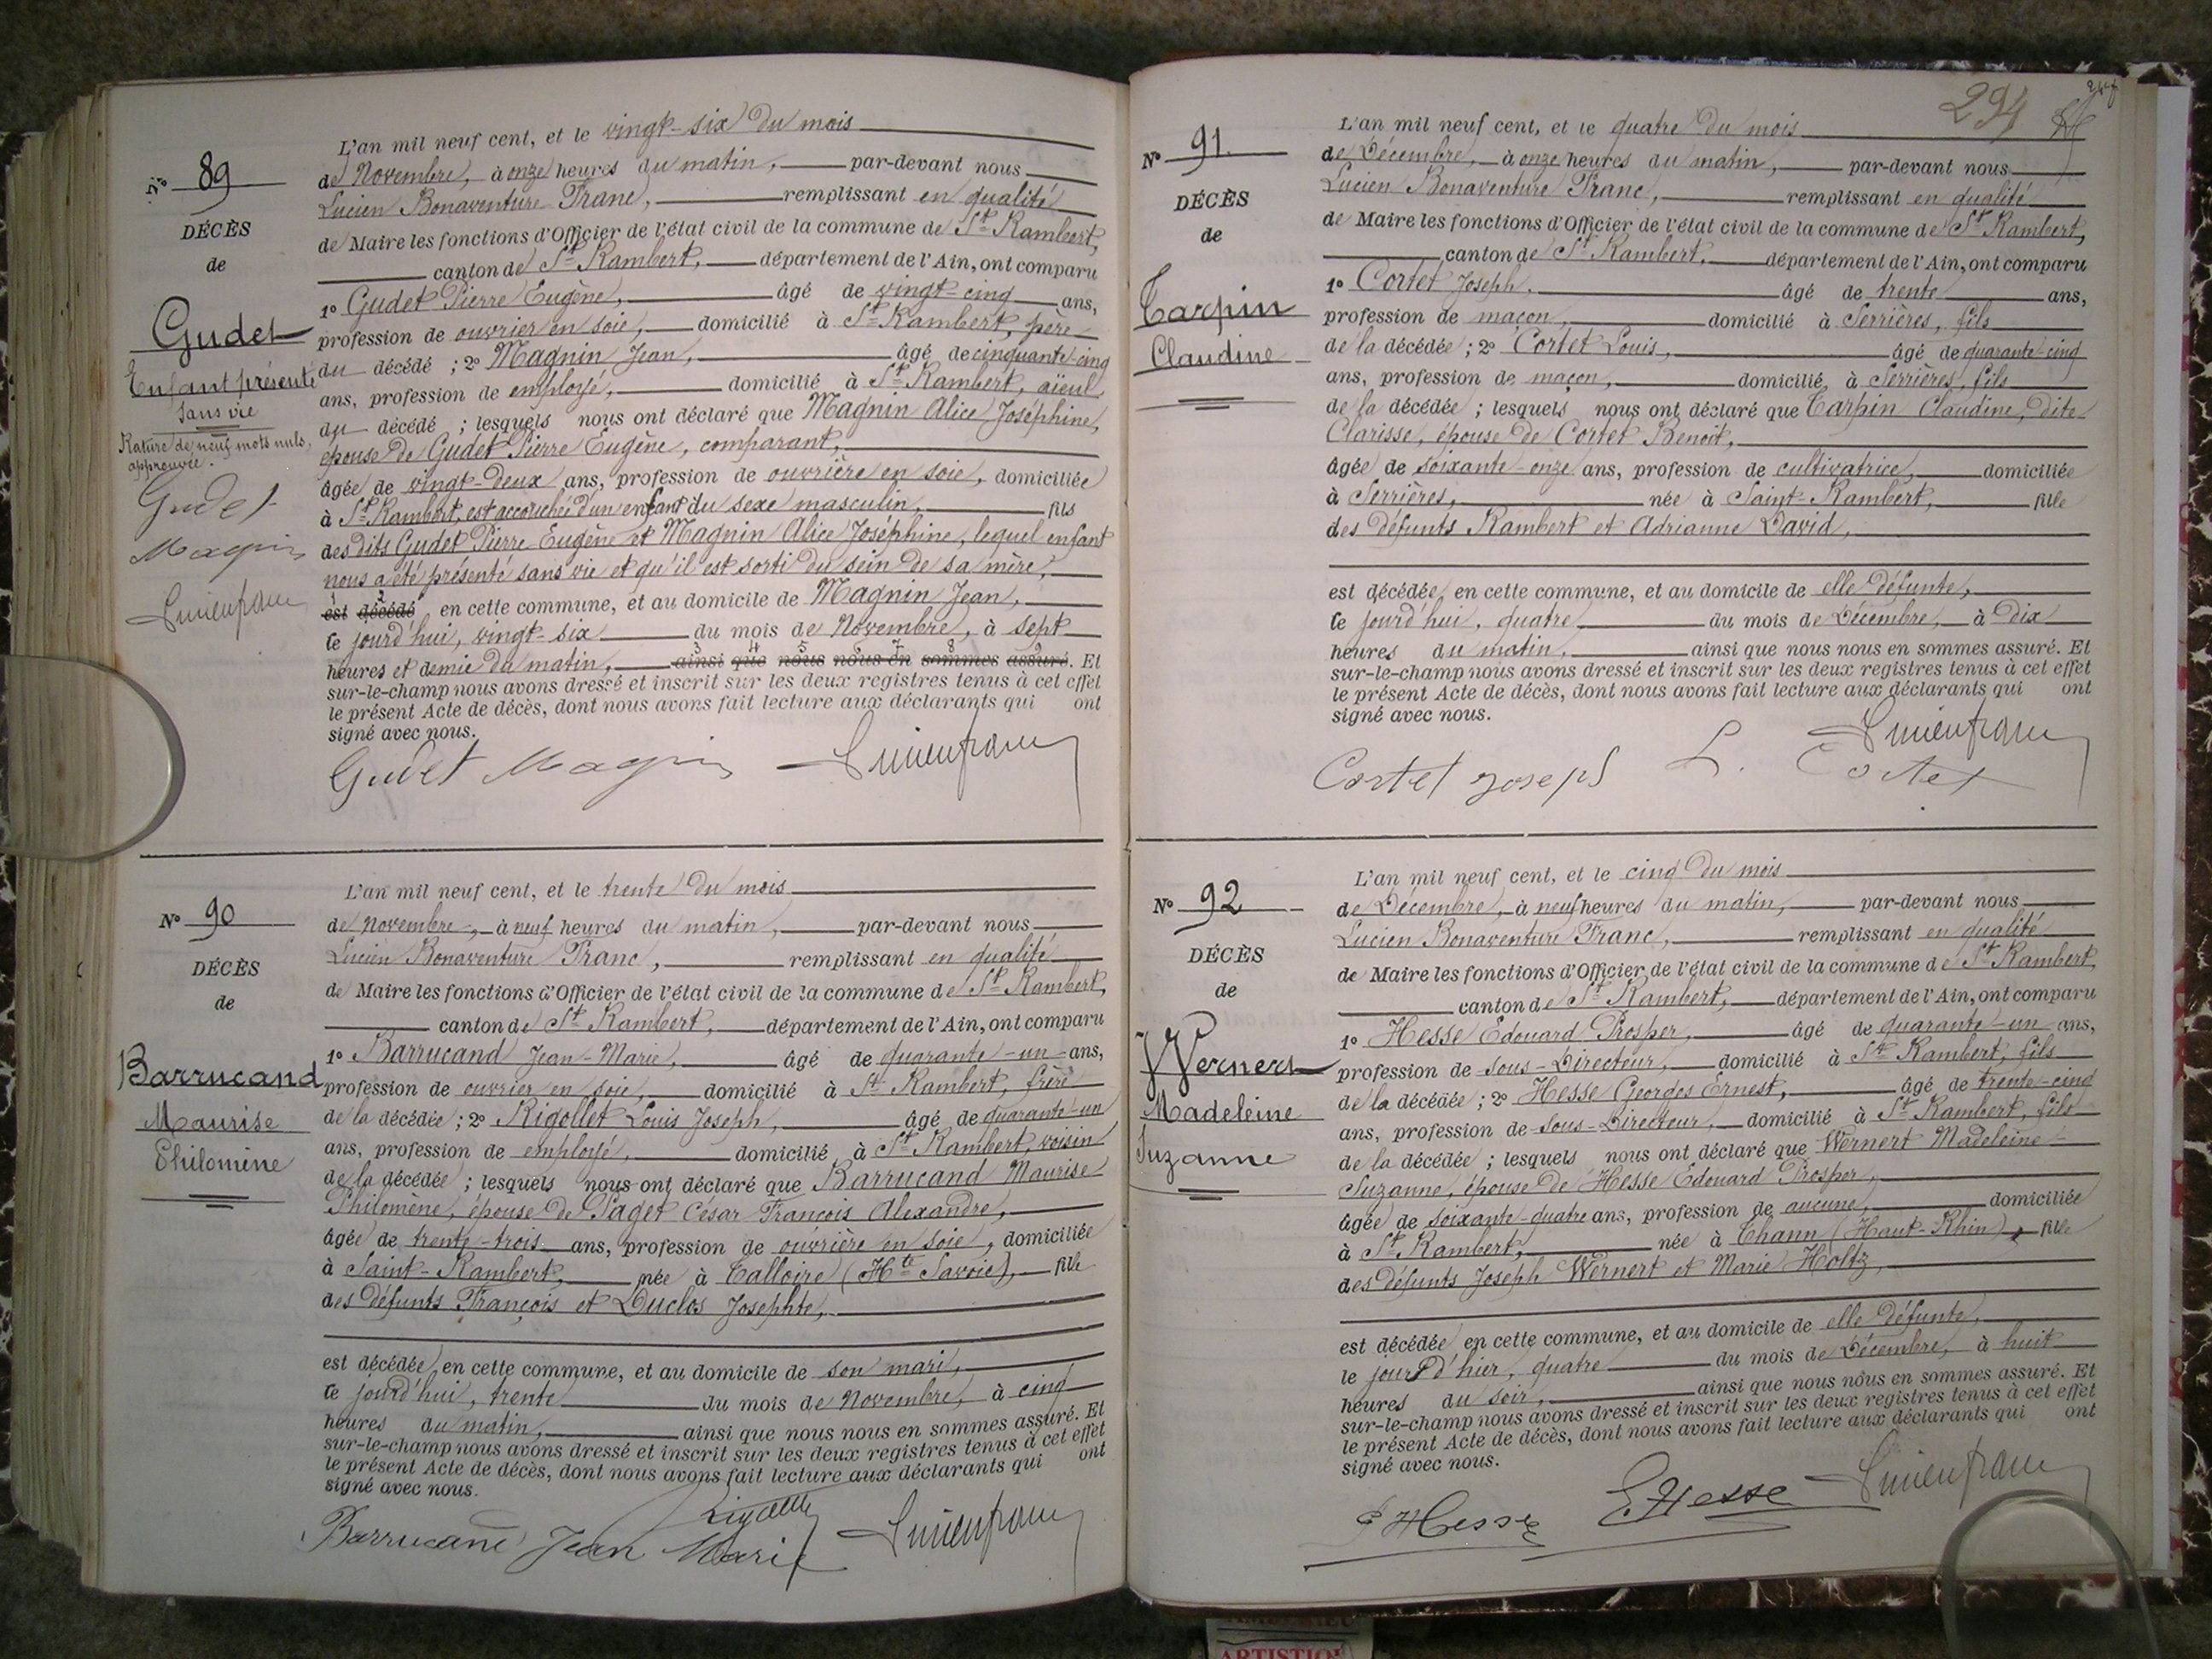 N° 89
DÉCÈS
de
Gudet
Enfant présenté
sans vie
Rature de neuf mots nuls,
approuvée.
Gudet
Magnin
L'an mil neuf cent, et le vingt-six du mois
de Novembre, à onze heures du matin, par-devant nous
Lucien Bonaventure Franc, remplissant en qualité
de Maire les fonctions d'Officier de l'état civil de la commune de St Rambert,
canton de St Rambert, département de l'Ain, ont comparu
1° Gudet Pierre Eugène, âgé de vingt-cinq ans,
profession de ouvrier en soie, domicilié à St Rambert, père
du décédé ; 2° Magnin Jean, âgé de cinquante-cinq
ans, profession de employé, domicilié à St Rambert, aïeul
du décédé ; lesquels nous ont déclaré que Magnin Alice Joséphine,
épouse de Gudet Pierre Eugène, comparant,
âgée de vingt-deux ans, profession de ouvrière en soie, domiciliée
à St Rambert, est accouchée d'un enfant du sexe masculin, fils
des dits Gudet Pierre Eugène et Magnin Alice Joséphine, lequel enfant
nous a été présenté sans vie et qu'il est sorti du sein de sa mère,
1 2
est décédé en cette commune, et au domicile de Magnin Jean,
ce jourd'hui, vingt-six du mois de Novembre, à sept
3 4 5 6 7 8 9
heures et demie du matin, ainsi que nous nous en sommes assuré. Et
sur-le-champ nous avons dressé et inscrit sur les deux registres tenus à cet effet
le présent Acte de décès, dont nous avons fait lecture aux déclarants qui ont
signé avec nous.
Gudet Magnin Lucien franc
N° 90
DÉCÈS
de
Barrucand
Maurise
Philomène
L'an mil neuf cent, et le trente du mois
de Novembre, à neuf heures du matin, par-devant nous
Lucien Bonaventure Franc, remplissant en qualité
de Maire les fonctions d'Officier de l'état civil de la commune de St Rambert,
canton de St Rambert, département de l'Ain, ont comparu
1° Barrucand Jean-Marie, âgé de quarante-un ans,
profession de ouvrier en soie, domicilié à St Rambert, frère
de la décédée ; 2° Rigollet Louis Joseph, âgé de quarante-un
ans, profession de employé, domicilié à St Rambert, voisin
de la décédée ; lesquels nous ont déclaré que Barrucand Maurise
Philomène, épouse de Paget César François Alexandre,
âgée de trente-trois ans, profession de ouvrière en soie, domiciliée
à Saint-Rambert, née à Talloire (Hte Savoie), fille
des défunts François et Duclos Josephte,
est décédée en cette commune, et au domicile de son mari,
ce jourd'hui, trente du mois de Novembre, à cinq
heures du matin, ainsi que nous nous en sommes assuré. Et
sur-le-champ nous avons dressé et inscrit sur les deux registres tenus à cet effet
le présent Acte de décès, dont nous avons fait lecture aux déclarants qui ont
signé avec nous.
Rigollet
Barrucand Jean Marie Lucien franc
294
N° 91
DÉCÈS
de
Tarpin
Claudine
L'an mil neuf cent, et le quatre du mois
de Décembre, à onze heures du matin, par-devant nous
Lucien Bonaventure Franc, remplissant en qualité
de Maire les fonctions d'Officier de l'état civil de la commune de St Rambert,
canton de St Rambert, département de l'Ain, ont comparu
1° Cortet Joseph, âgé de trente ans,
profession de maçon, domicilié à Serrières, fils
de la décédée ; 2° Cortet Louis, âgé de quarante-cinq
ans, profession de maçon, domicilié à Serrières, fils
de la décédée ; lesquels nous ont déclaré que Tarpin Claudine, dite
Clarisse, épouse de Cortet Benoit,
âgée de soixante-onze ans, profession de cultivatrice, domiciliée
à Serrières, née à Saint-Rambert, fille
des défunts Rambert et Adrianne David,
est décédée en cette commune, et au domicile de elle défunte,
ce jourd'hui, quatre du mois de Décembre, à dix
heures du matin, ainsi que nous nous en sommes assuré. Et
sur-le-champ nous avons dressé et inscrit sur les deux registres tenus à cet effet
le présent Acte de décès, dont nous avons fait lecture aux déclarants qui ont
signé avec nous.
Lucien franc
Cortet Joseph L. Cortet
N° 92
DÉCÈS
de
Wernert
Madeleine
Suzanne
L'an mil neuf cent, et le cinq du mois
de Décembre, à neuf heures du matin, par-devant nous
Lucien Bonaventure Franc, remplissant en qualité
de Maire les fonctions d'Officier de l'état civil de la commune de St Rambert,
canton de St Rambert, département de l'Ain, ont comparu
1° Hesse Edouard Prosper, âgé de quarante-un ans,
profession de sous-Directeur, domicilié à St Rambert, fils
de la décédée ; 2° Hesse Georges Ernest, âgé de trente-cinq
ans, profession de sous-Directeur, domicilié à St Rambert, fils
de la décédée ; lesquels nous ont déclaré que Wernert Madeleine
Suzanne, épouse de Hesse Edouard Prosper,
âgée de soixante-quatre ans, profession de aucune, domiciliée
à St Rambert, née à Thann (Haut-Rhin), fille
des défunts Joseph Wernert et Marie Holtz,
est décédée en cette commune, et au domicile de elle défunte,
le jour d'hier, quatre du mois de Décembre, à huit
heures du soir, ainsi que nous nous en sommes assuré. Et
sur-le-champ nous avons dressé et inscrit sur les deux registres tenus à cet effet
le présent Acte de décès, dont nous avons fait lecture aux déclarants qui ont
signé avec nous.
Hesse E Hesse Lucien franc